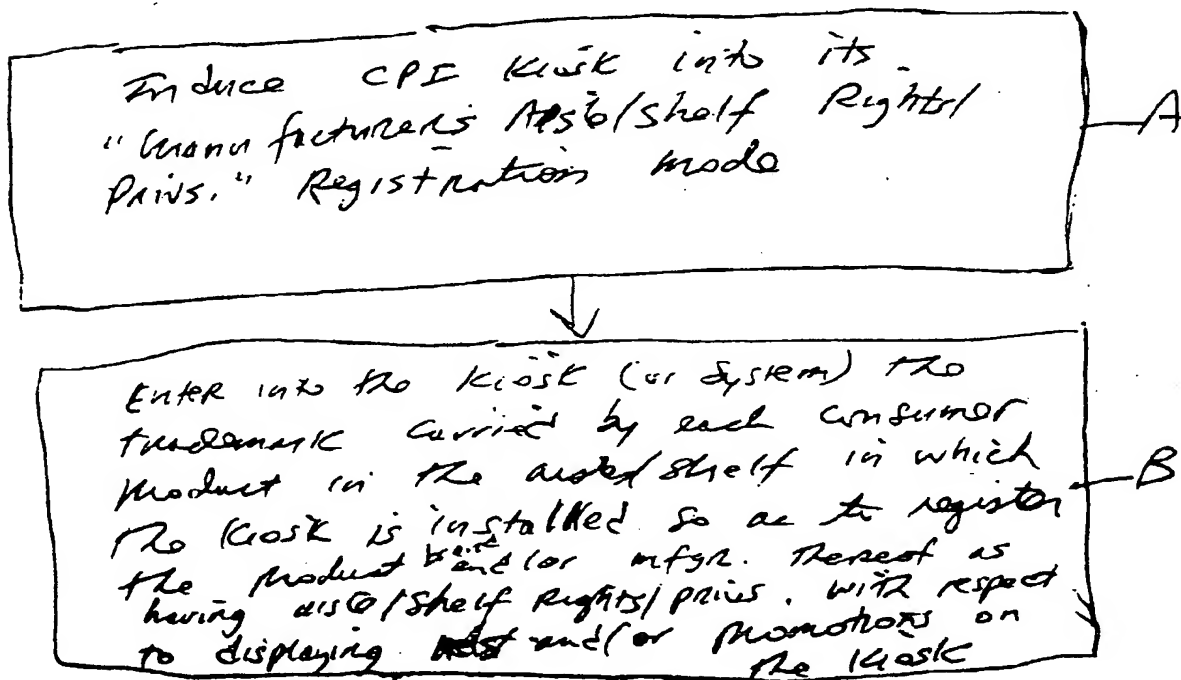 Induce CPI Kiosk into its
"Manufacturer's Aisle/Shelf Rights/
Privs." Registration mode
A
Enter into the Kiosk (or system) the
trademark carried by each consumer
product in the aisle/shelf in which
the Kiosk is installed so as to register
the product brand and/or mfgr. thereof as
having aisle/shelf Rights/privs. with respect
to displaying and/or promotions on
the Kiosk
B